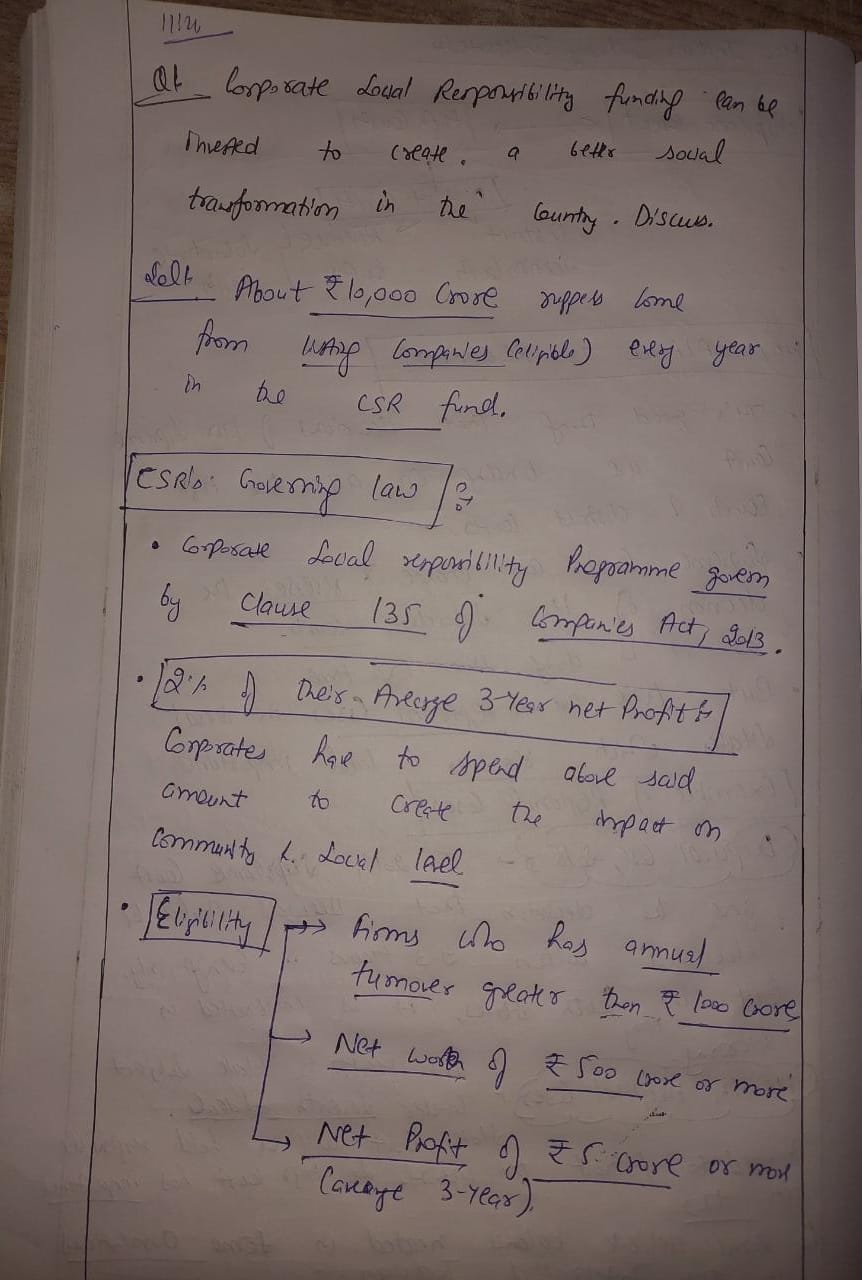 Q1. Corporate Social Responsibility funding can be
invested to create a better social
transformation in the Country. Discuss.
Sol:- About ₹10,000 Crore ruppess come
from listing Companies (eligible) every year
in the CSR fund.
CSR's Governing law :-
• Corporate Social responsibility Programme govern
by Clause 135 of Companies Act, 2013.
• 2% of their Average 3-Year net Profit :-
Corporates have to spend above said
amount to create the impact on
Community & Social level
• Eligibility →→ Firms who has annual
turnover greater then ₹ 1000 Crore
→ Net worth of ₹ 500 crore or more
→ Net Profit of ₹ 5 crore or more
(average 3-Year)